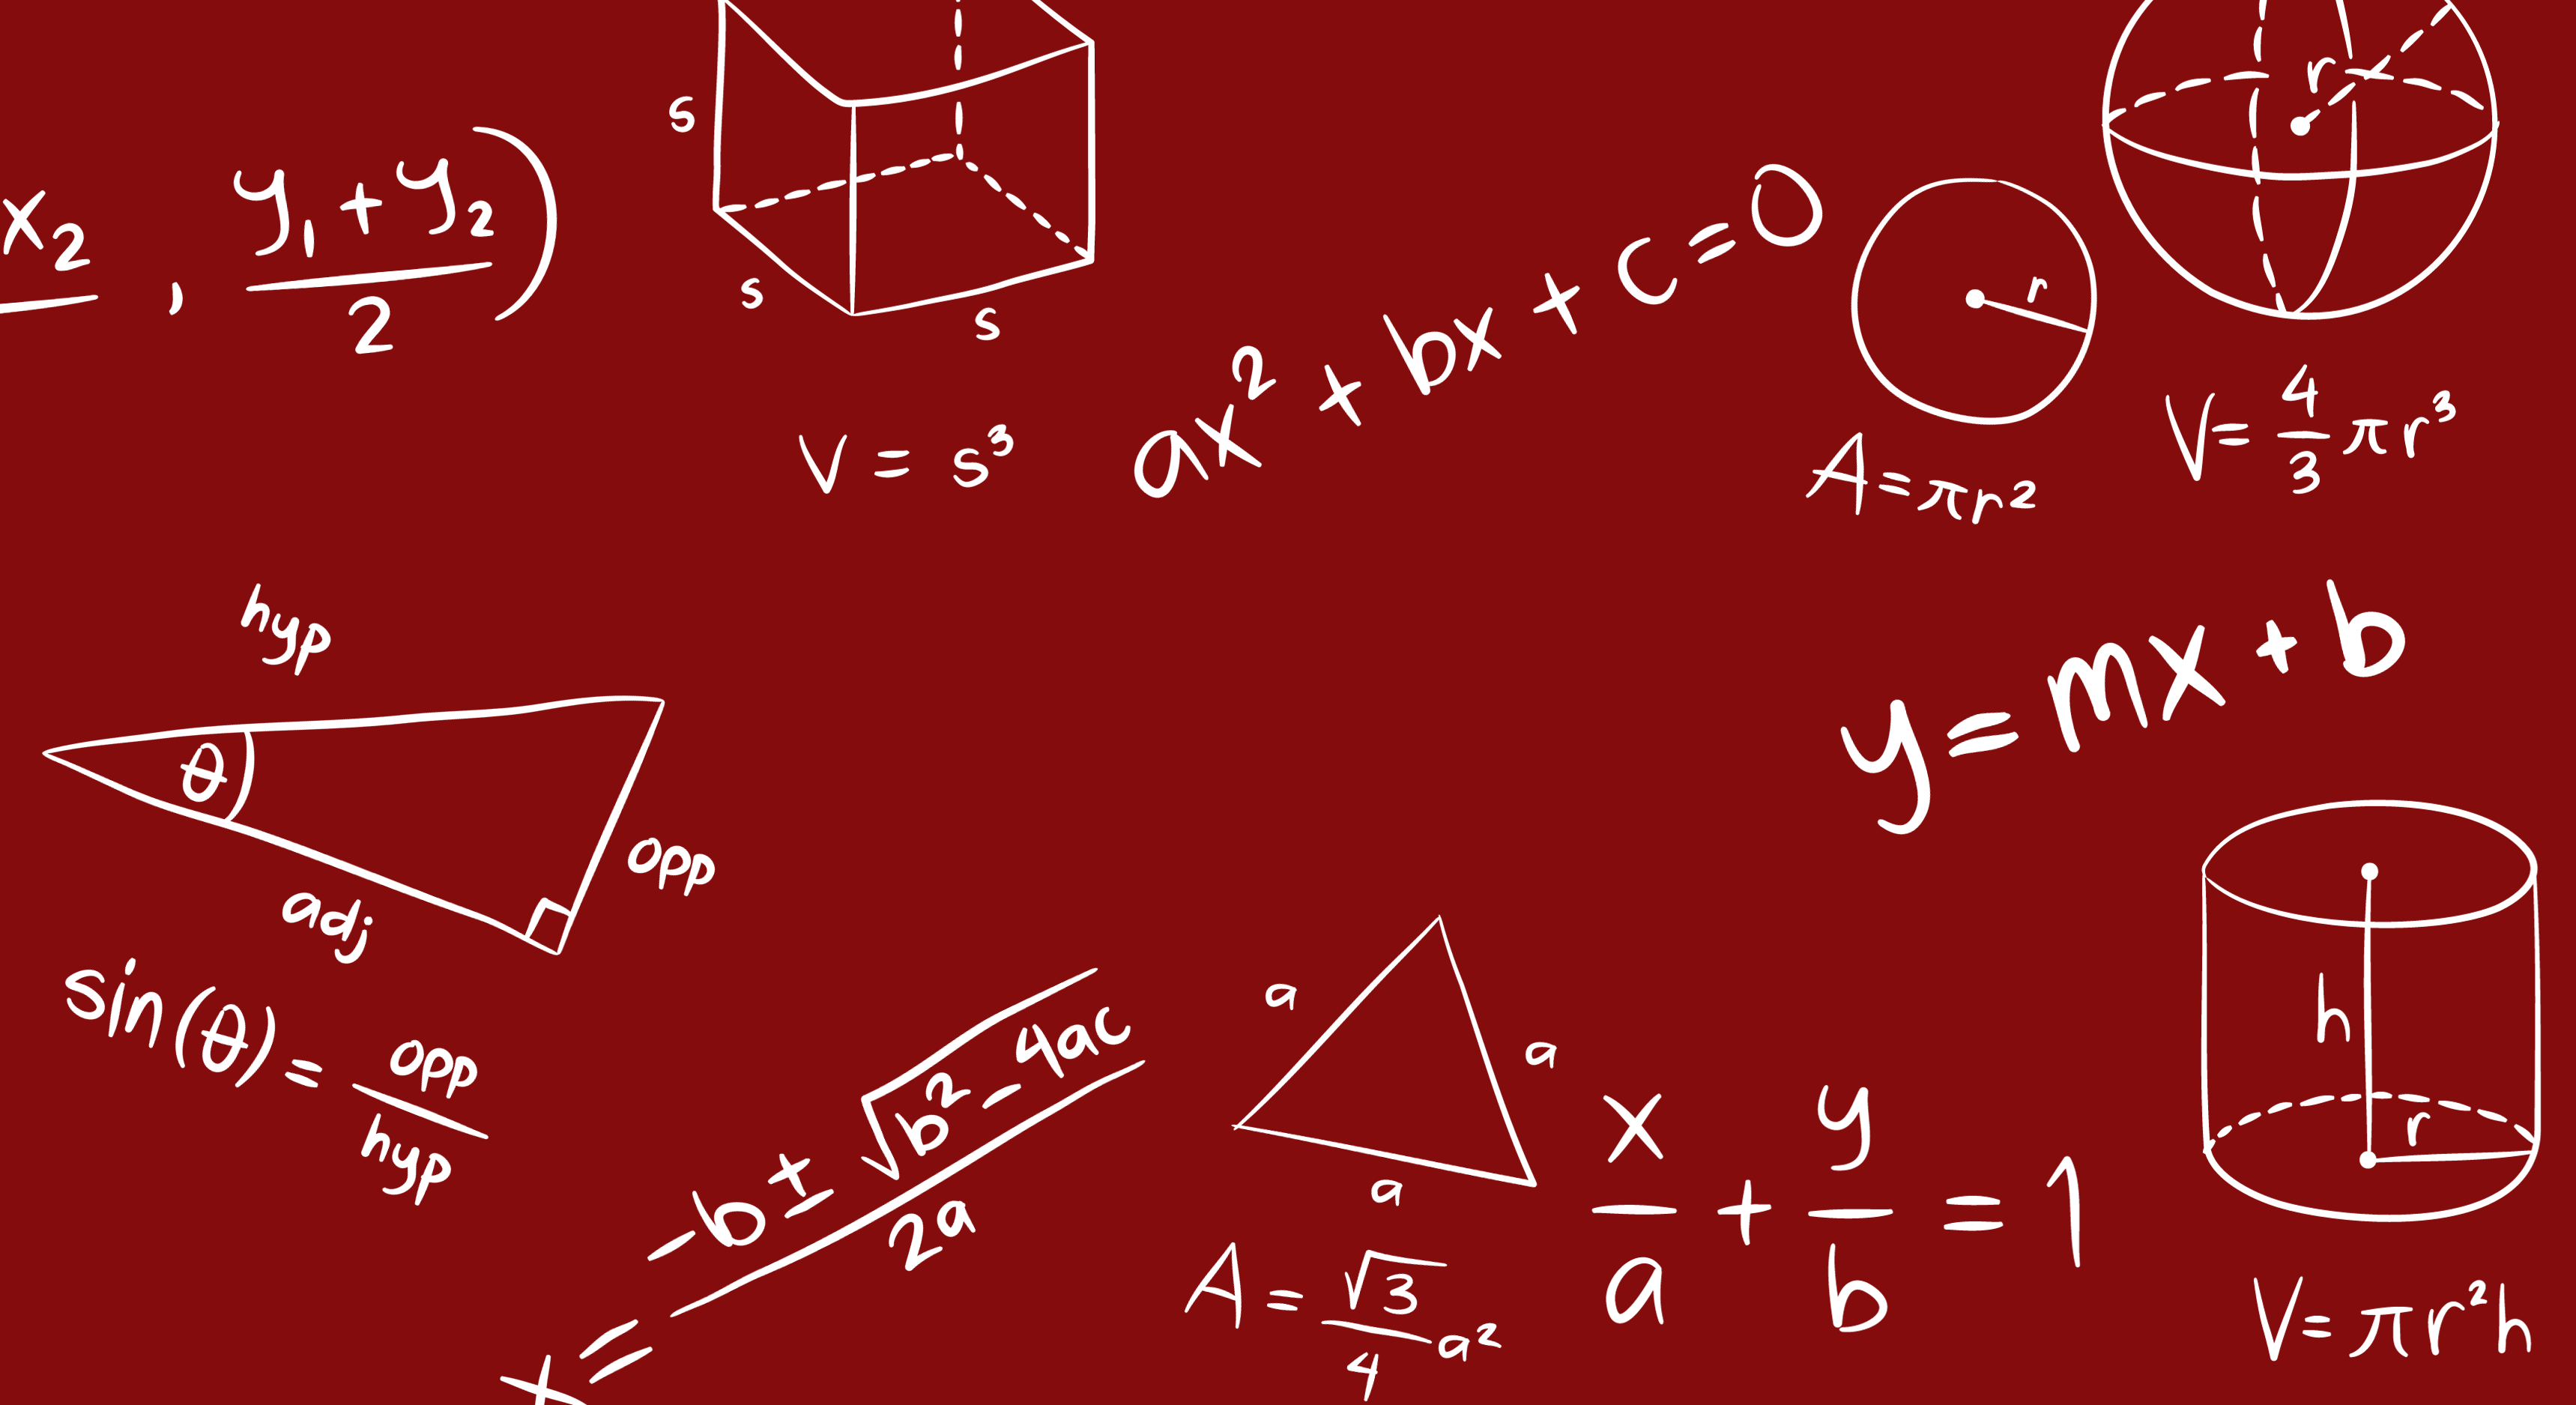 x₂ , y₁+y₂)
2
s
s
s
V = s³
ax² + bx + c = 0
r
A = πr²
r
V = 4/3 πr³
hyp
θ
opp
adj
sin(θ) = opp/hyp
y = mx + b
x = -b ± √b² - 4ac
2a
a
a
a
A = √3/4 a²
x/a + y/b = 1
h
r
V = πr²h